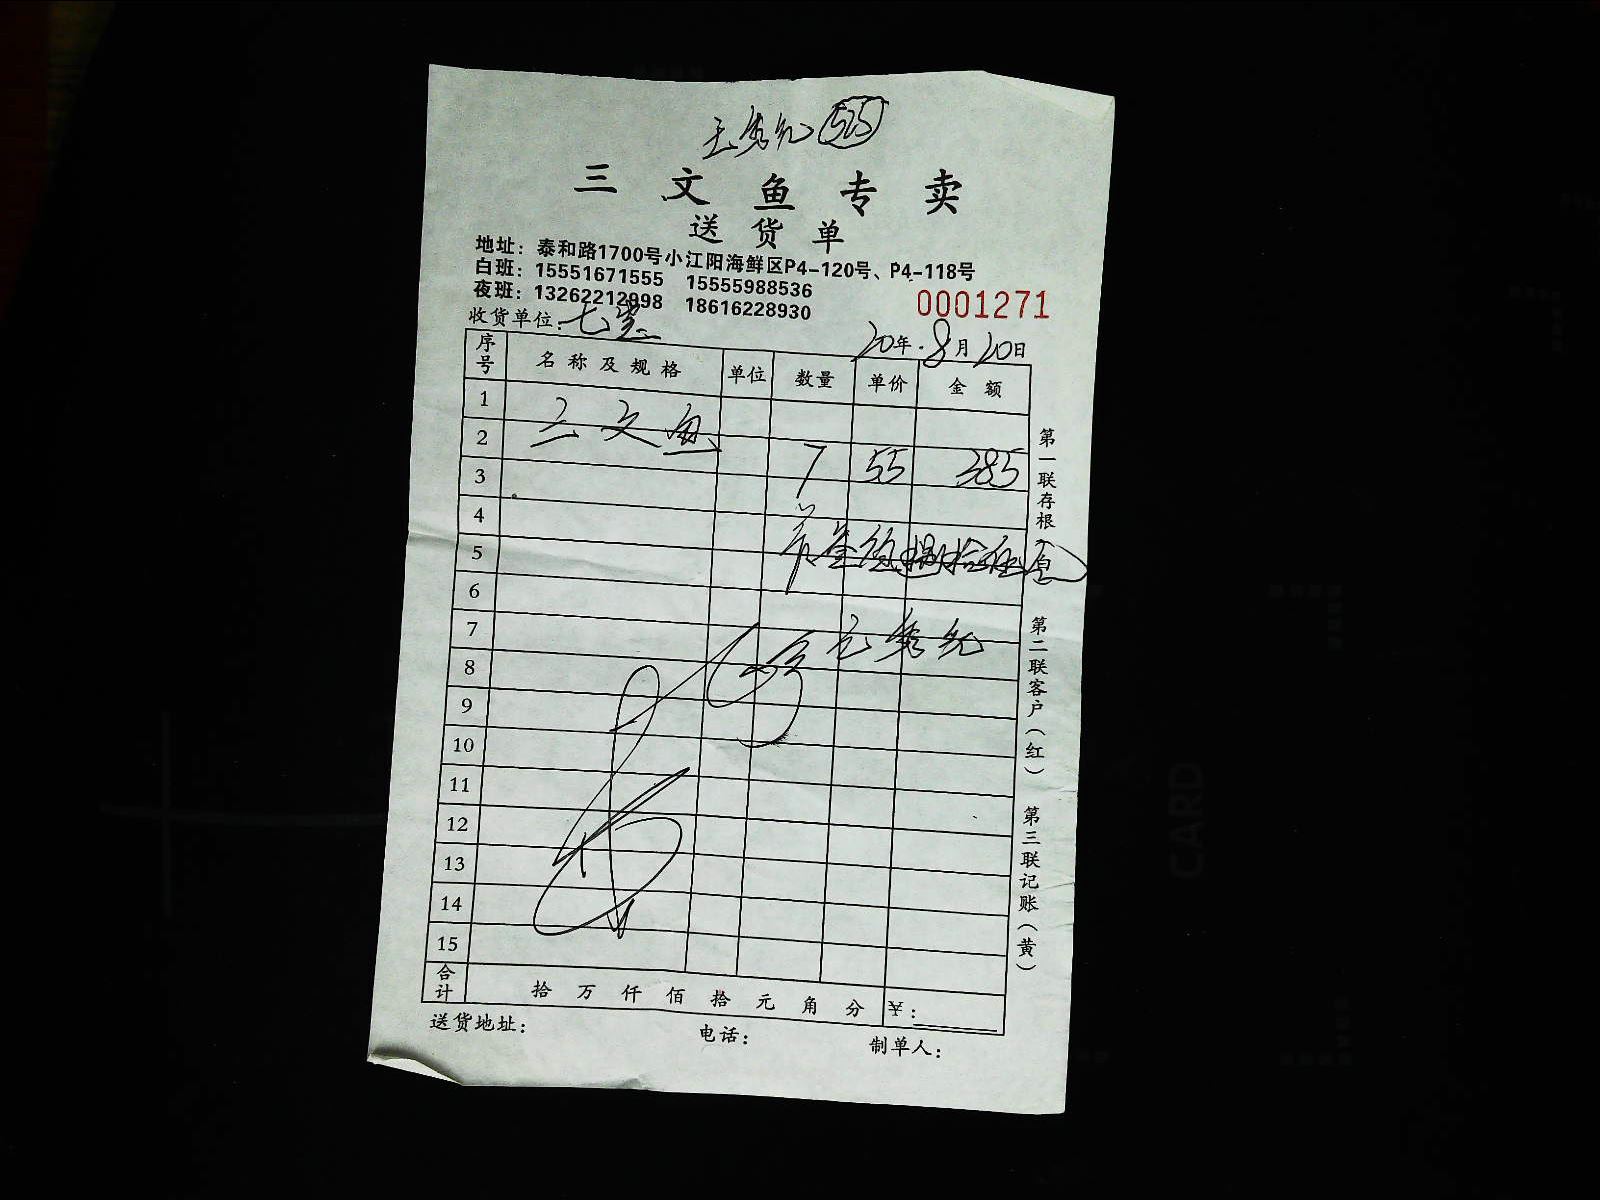 王秀红 525
三文鱼专卖
送货单
地址：泰和路1700号小江阳海鲜区P4-120号、P4-118号
白班：15551671555 15555988536
夜班：13262212998 18616228930
0001271
收货单位：七
20年.8月20日
序号 名称及规格 单位 数量 单价 金额
1
2 三文鱼 7 55 385
3
4
5 叁佰捌拾伍
6
7 王秀红
8
9
10
11
12
13
14
15
合计 拾万仟佰拾元角分 ¥：
送货地址： 电话： 制单人：
第一联存根
第二联客户（红）
第三联记账（黄）